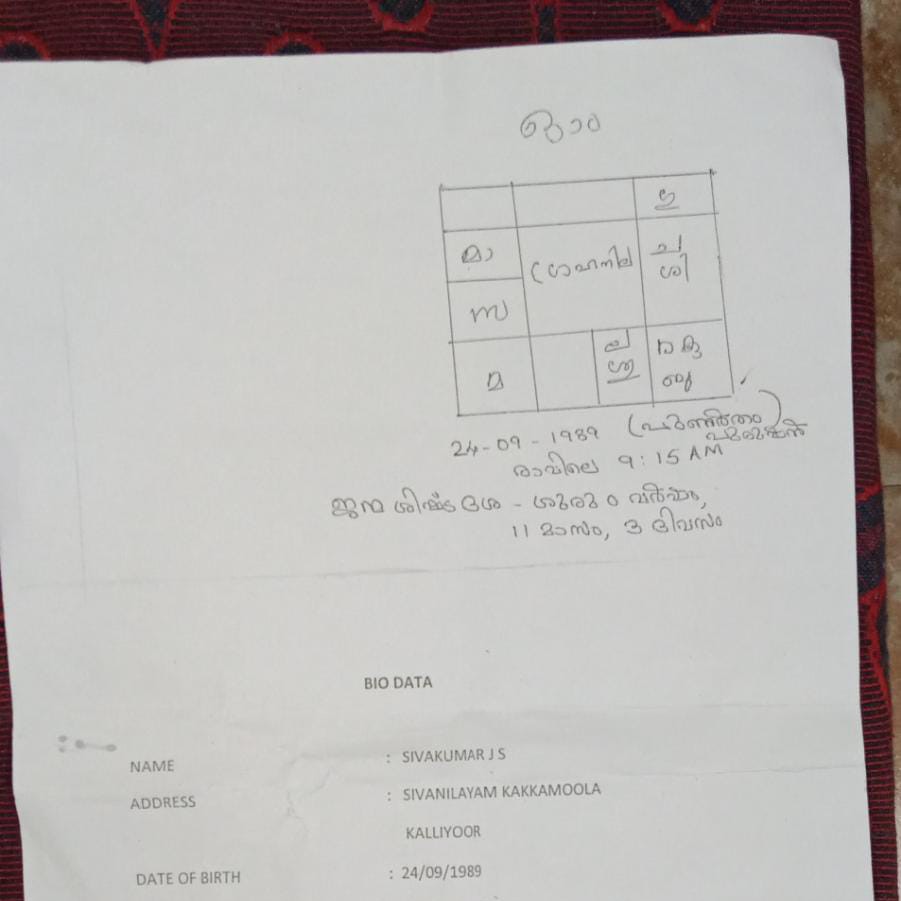 ഓം
ഗു
മാ
ച
ശി
ഗ്രഹനില
സ
ല
ശു
ര കു
ബു
മ
24-09-1989 (പുണർതം)
പുരുഷൻ
രാവിലെ 9:15 AM
ജന്മ ശിഷ്ട ദശ - ഗുരു 0 വർഷം,
11 മാസം, 3 ദിവസം
BIO DATA
NAME : SIVAKUMAR J S
ADDRESS : SIVANILAYAM KAKKAMOOLA
KALLIYOOR
DATE OF BIRTH : 24/09/1989